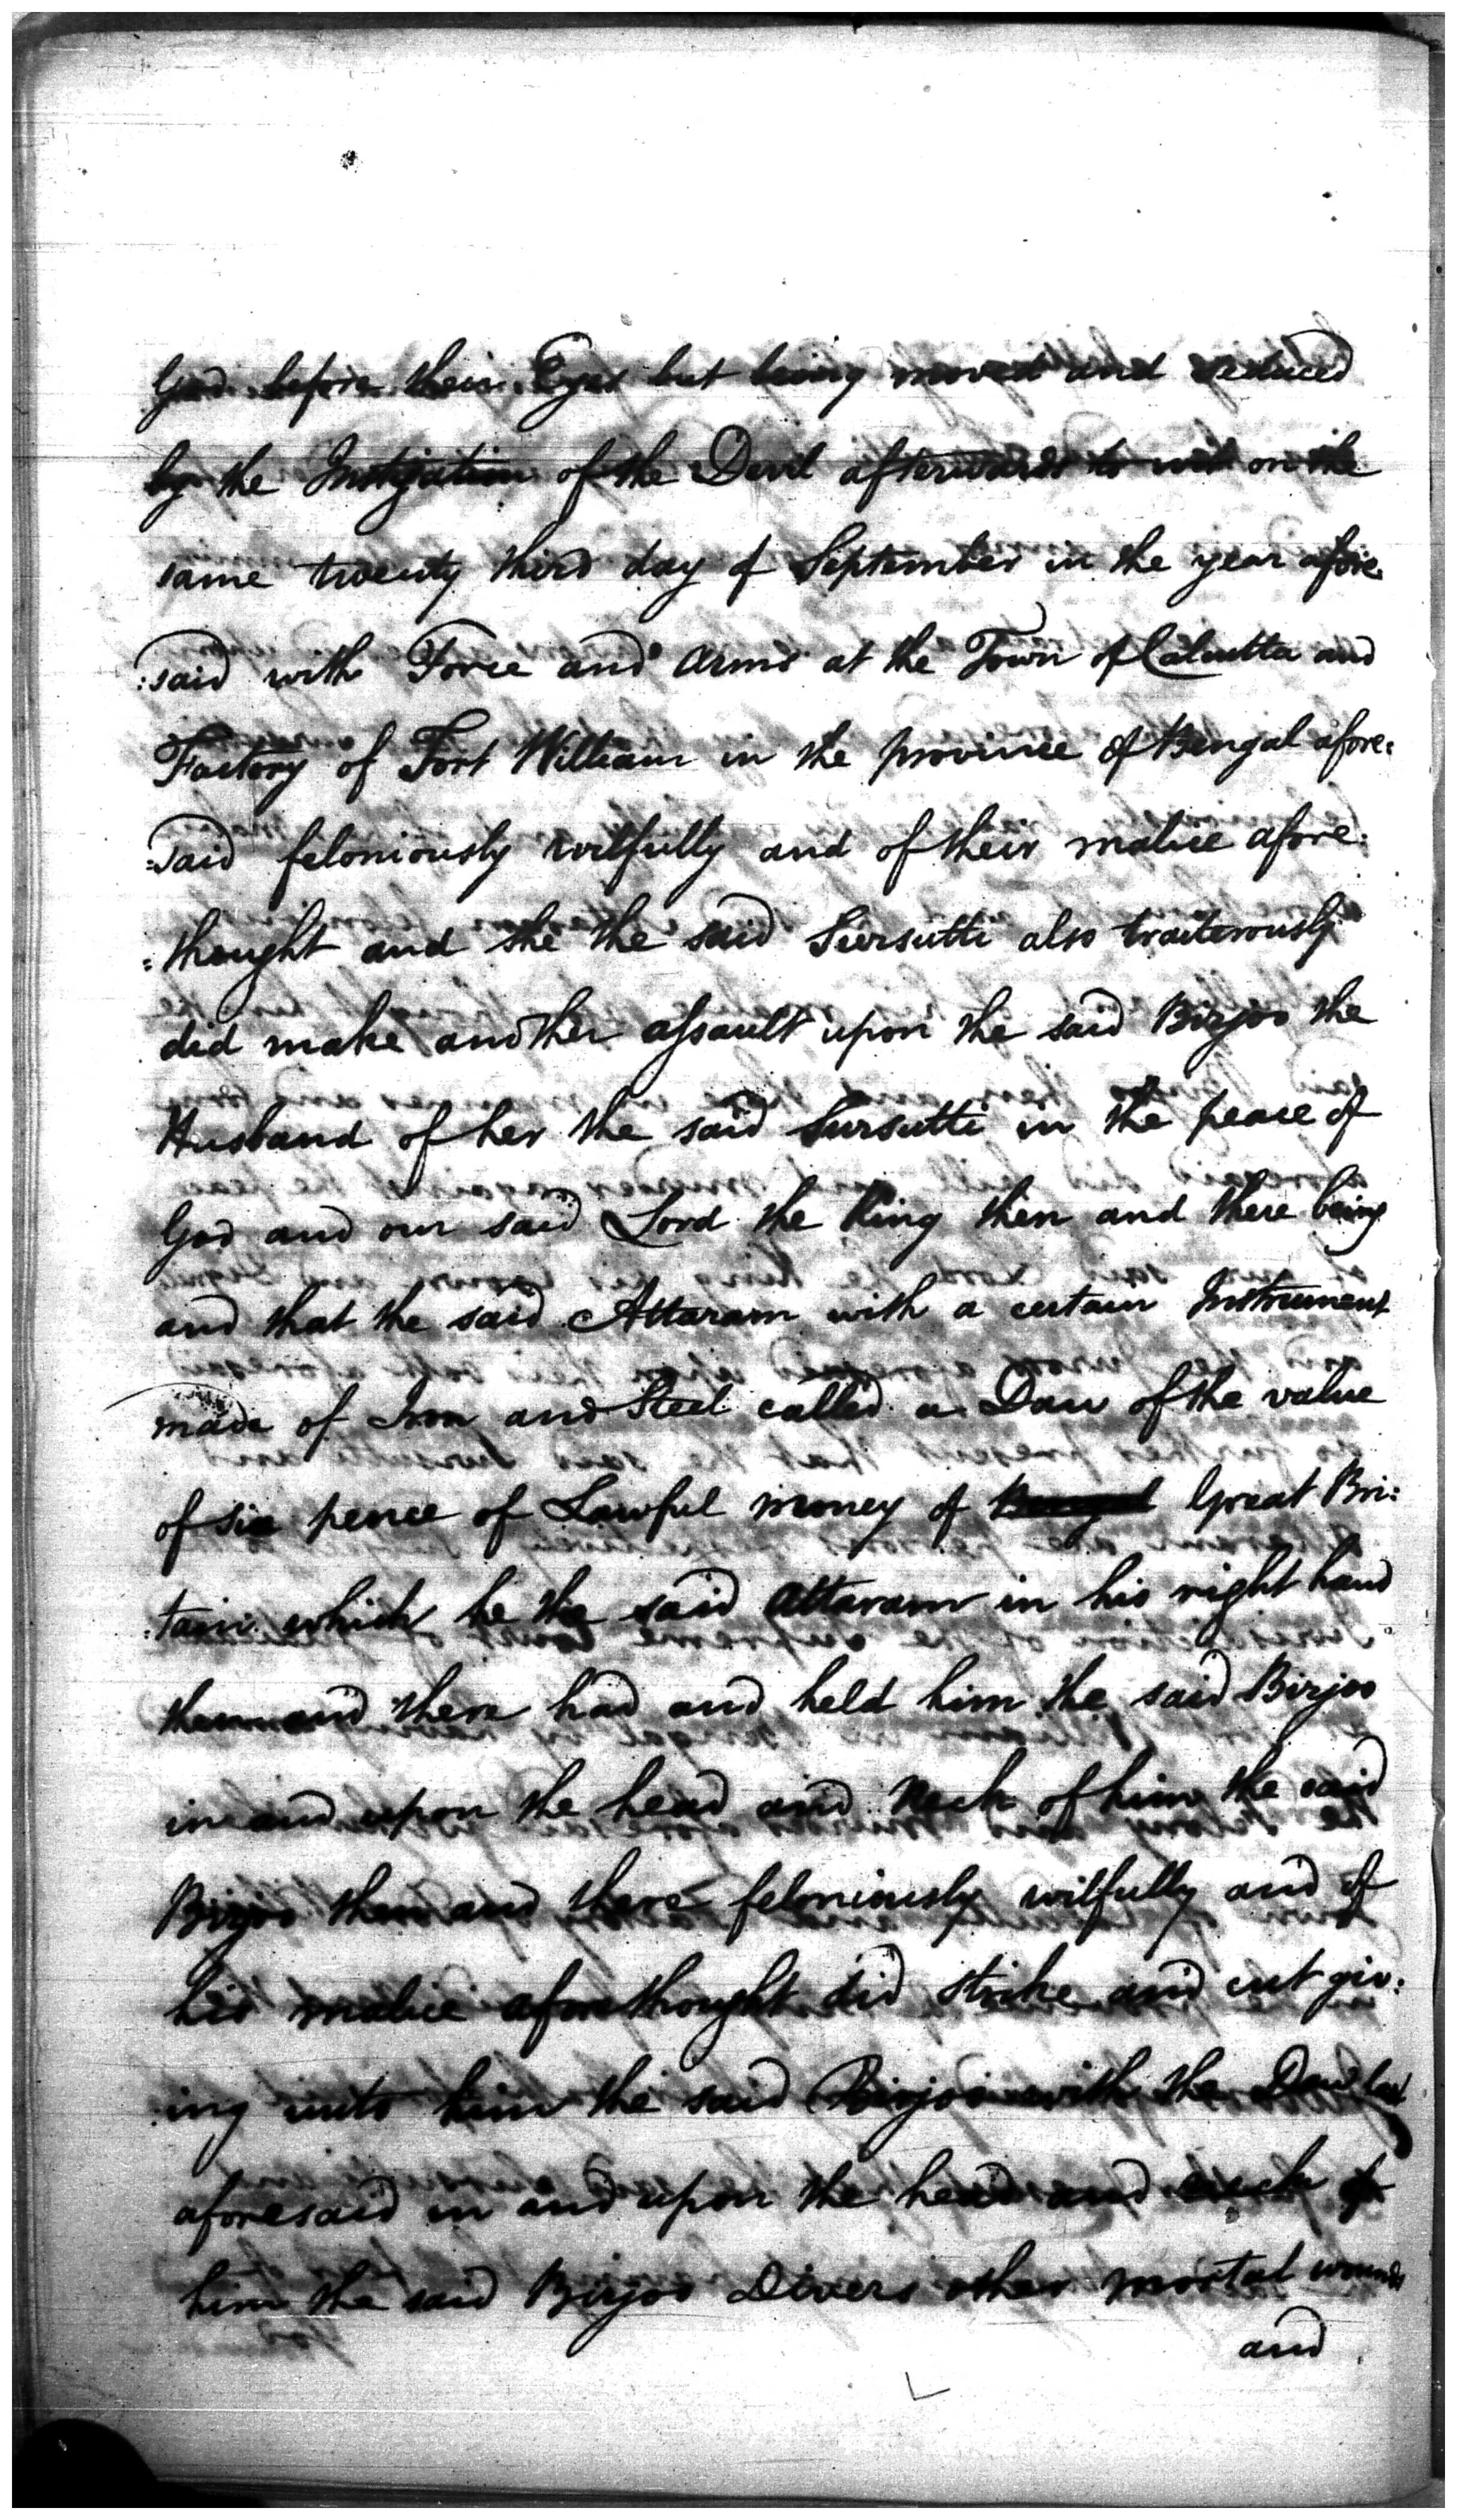 God before their Eyes but being moved and seduced
by the Instigation of the Devil afterwards to wit on the
same twenty third day of September in the year afore
:said with Force and Arms at the Town of Calcutta and
Factory of Fort William in the province of Bengal afore:
:said feloniously wilfully and of their malice afore:
:thought and she the said Sursutti also traiterously
did make another assault upon the said Birjoo the
Husband of her the said Sursutti in the peace of
God and our said Lord the King then and there being
and that the said Attaram with a certain Instrument
made of Iron and Steel called a Dau of the value
of six pence of Lawful money of Bengal Great Bri:
:tain which he the said Attaram in his right hand
then and there had and held him the said Birjoo
in and upon the head and Neck of him the said
Birjoo then and there feloniously wilfully and of
his malice aforethought did strike and cut giv:
:ing unto him the said Birjoo with the Dau last
aforesaid in and upon the head and neck of
him the said Birjoo Divers other mortal wounds
and